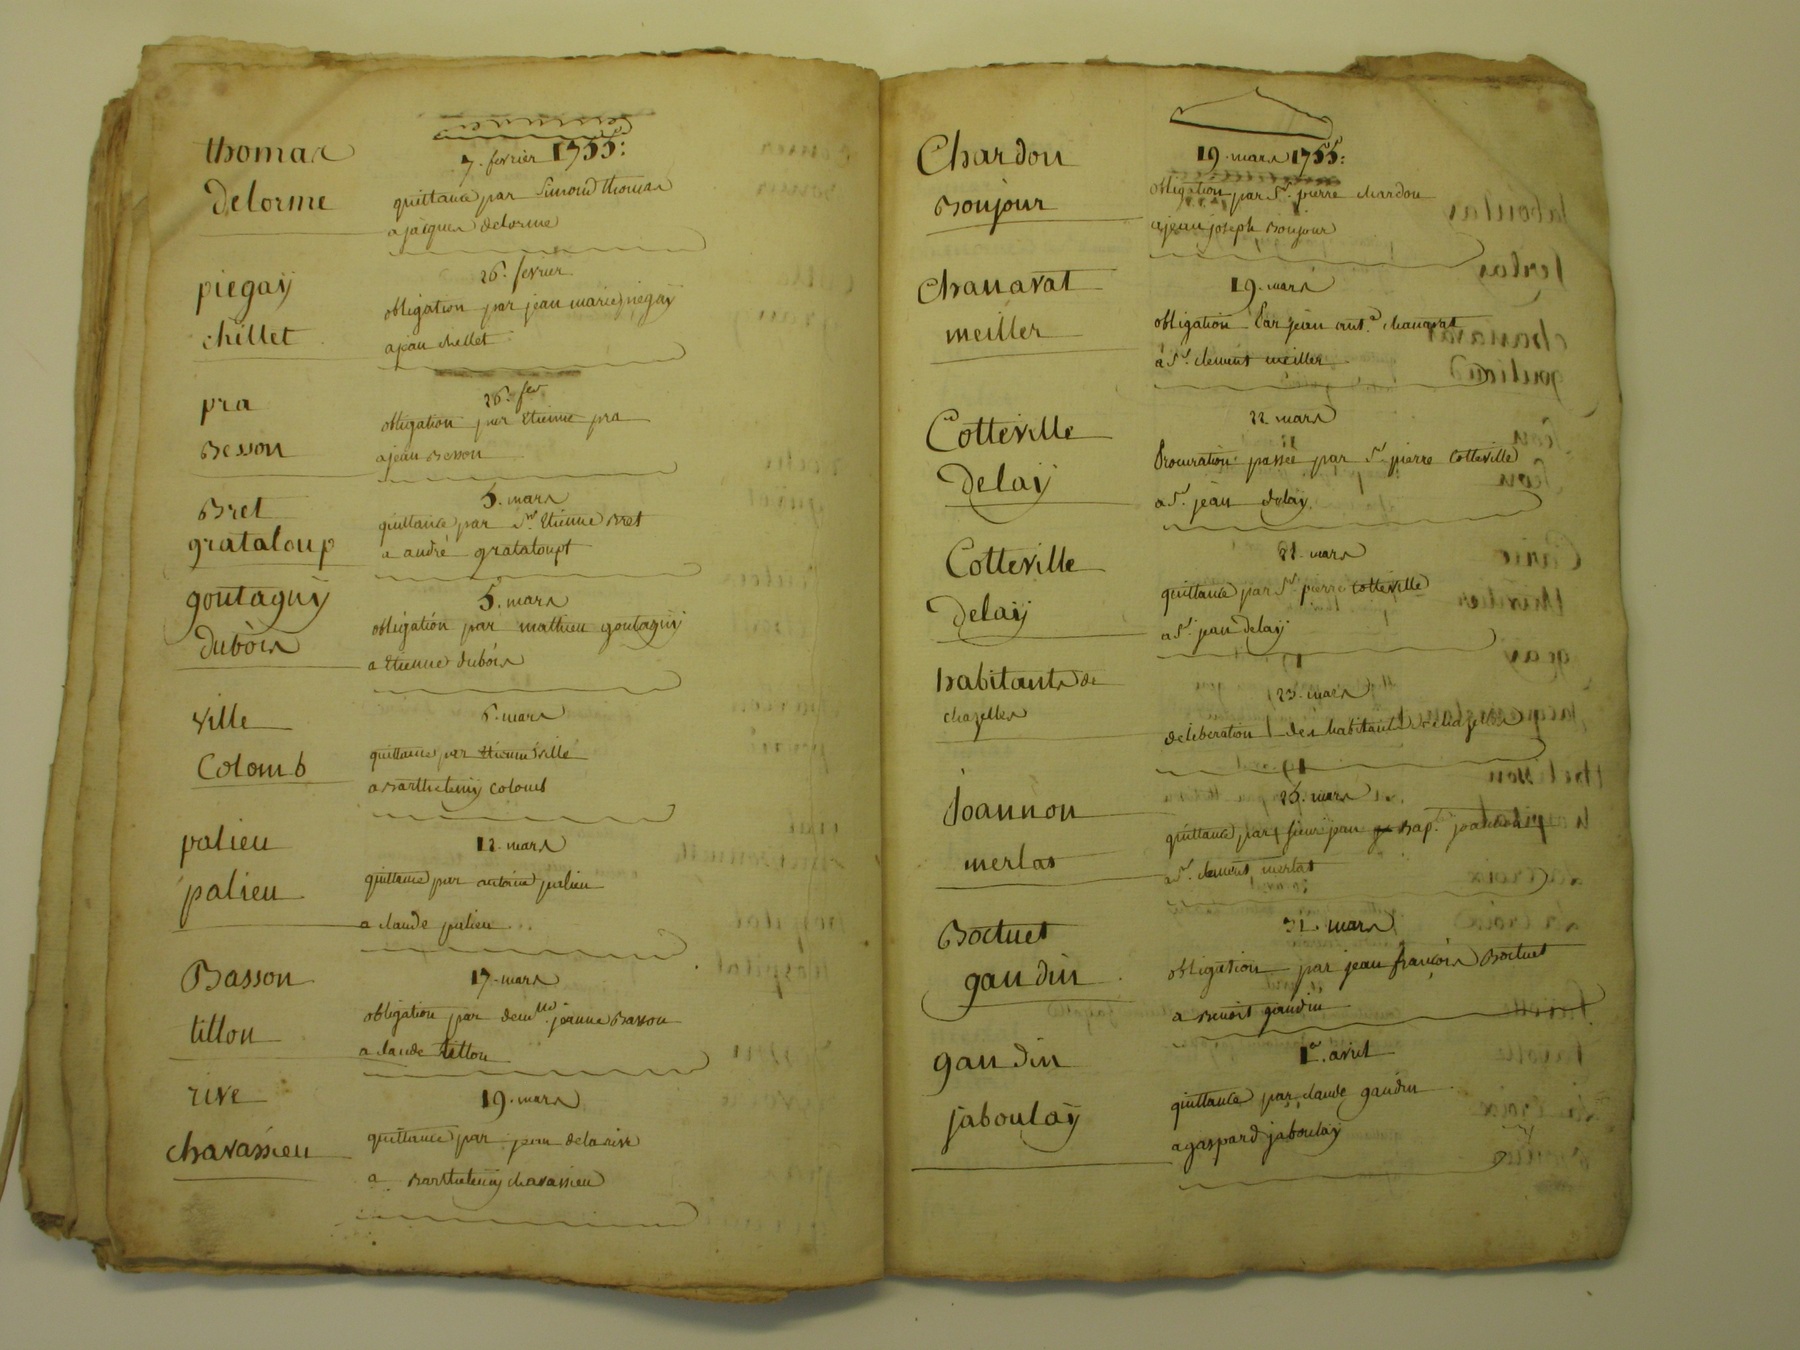 thomas
delorme
7. fevrier 1755:
quittance par Simond thomas
a jaiques delorme
piegaÿ
chillet
26. fevrier
obligation par jean marie piegaÿ
a jean chillet
pra
Besson
26. fev
obligation par Etienne pra
a jean Besson
Bret
grataloup
5. mars
quittance par Sr. Etienne Bret
a andré grataloupt
goutagnÿ
dubois
5. mars
obligation par mathieu goutagnÿ
a Etienne dubois
ville
Colomb
6. mars
quittance par Etienne ville
a Barthelemy Colomb
palieu
palieu
12. mars
quittance par antoine palieu
a claude palieu
Basson
tillon
17. mars
obligation par demlle. jeanne Basson
a claude tillon
rive
chavassieu
19. mars
quittance par jean delarive
a Barthelemy chavassieu
Chardon
Bonjour
19. mars 1755:
obligation par Sr. pierre chardon
a jean joseph Bonjour
Chanavat
meiller
19. mars
obligation Par jean ant.e chanavat
a Sr. clement meiller
Cotteville
Delaÿ
22. mars
Procuration passée par Sr pierre Cotteville
a Sr. jean delaÿ
Cotteville
Delaÿ
quittance par Sr pierre Cotteville
a Sr. jean Delaÿ
habitants de
chazelles
23. mars
deliberation des habitants de chazelles
Joannon
merlat
quittance par sieur jean Bap.e joannon
a Sr. clement merlat
Boctuet
gaudin
31. mars
obligation par jean françois Boctuet
a Benoit gaudin
gaudin
jaboulaÿ
1er. avril
quittance par claude gaudin
a gaspard jaboulaÿ